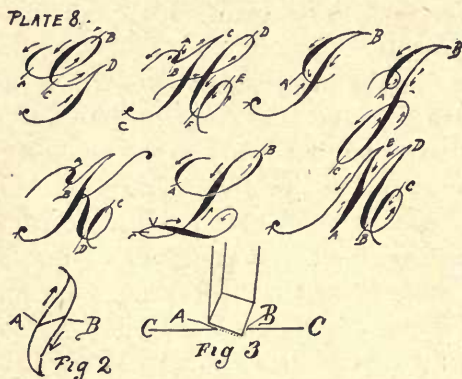 PLATE 8.
G H I J
K L M
A B
Fig 2
C A B C
Fig 3